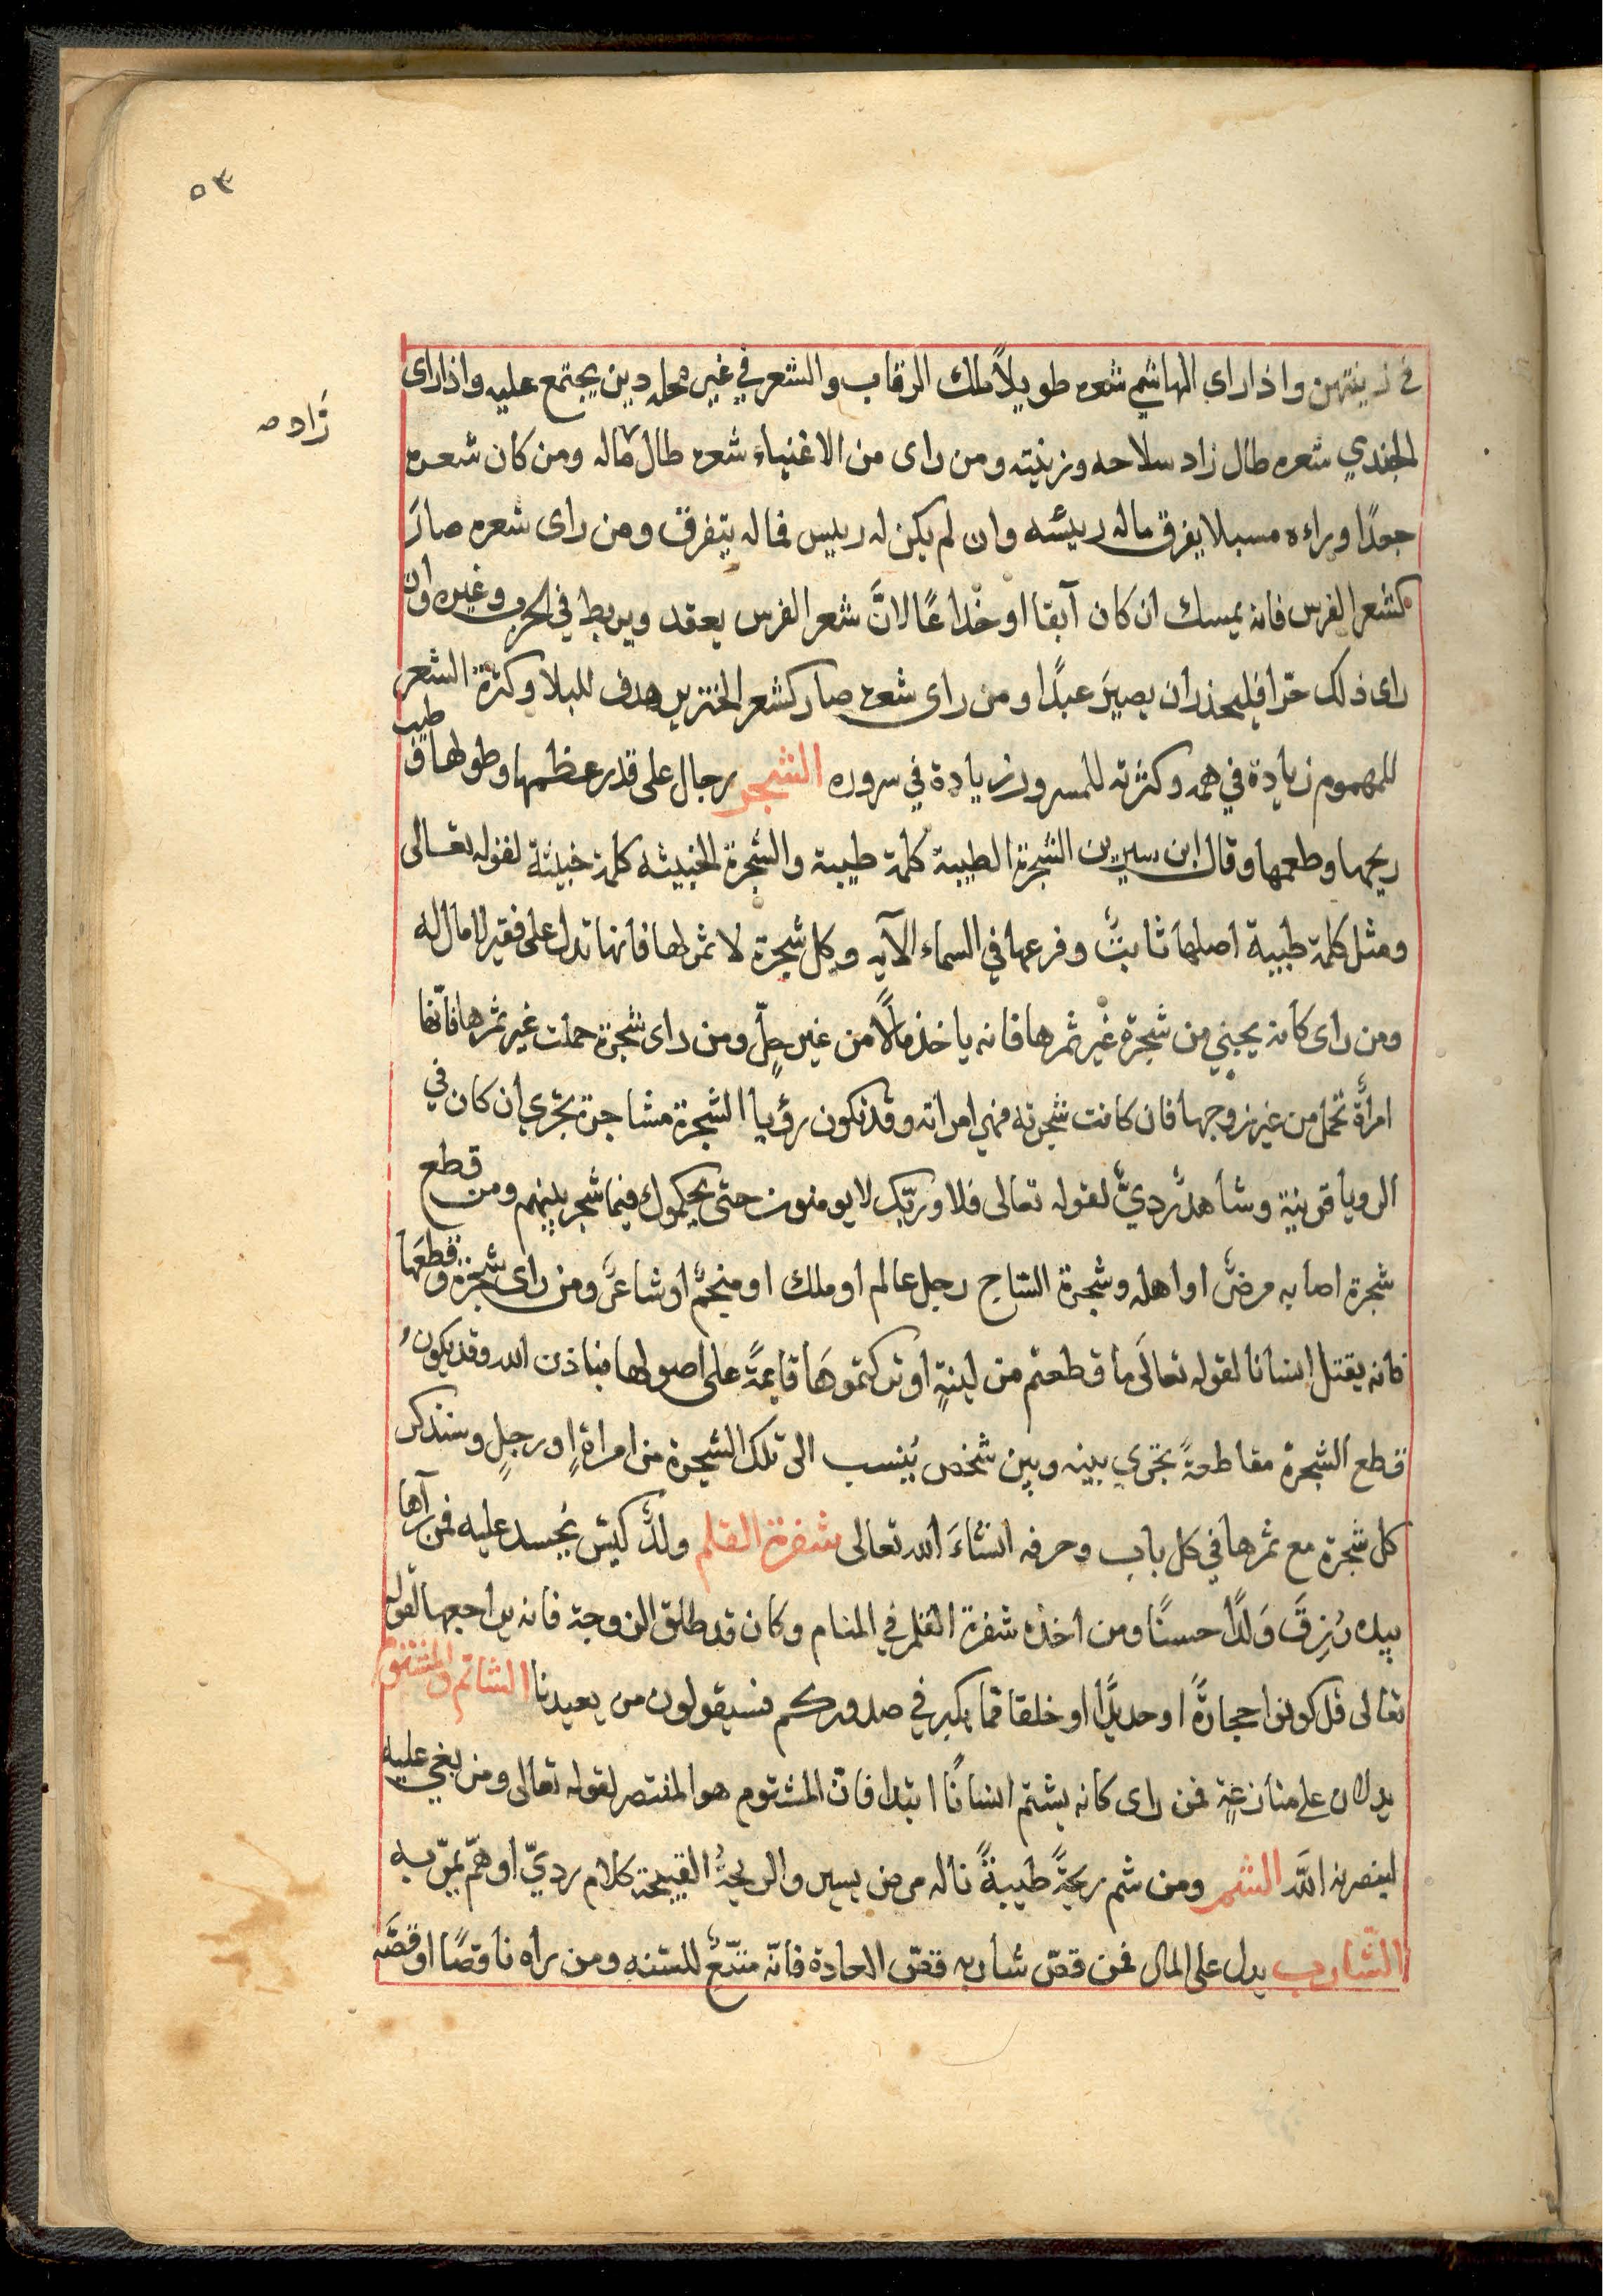 ٥٣
في زينتهن واذا راى الهاشمي شعره طويلاً ملك الرقاب والشعر في غير محله دين يجتمع عليه واذا راى
الجندي شعره طال زاد سلاحه وزينته ومن راى من الاغنياء شعره طال ماله ومن كان شعره
زاد
جعدًا وراءه مسبلا يفرق ماله رييسه وان لم يكن له رييس فماله يتفرق ومن راى شعره صارَ
كشعر الفرس فانه يمسك ان كان آبقا او خدّاعًا لانَّ شعر الفرس يعقد ويربط في الحرب وغيره وان
راى ذلك حرّا فليحذر ان يصيرَ عبدًا ومن راى شعره صار كشعر الخنزير هدف للبلا وكثرة الشعر
للمهموم زيادة في همه وكثرته للمسرور زيادة في سروره الشجر رجال على قدر عظمها وطولها و طيب
ريحها وطعمها وقال ابن سيرين الشجرة الطيبة كلمة طيبة والشجرة الخبيثه كلمة خبيثة لقوله تعالى
ومثل كلمة طيبة اصلها ثابتٌ وفرعها في السماء الآيه وكل شجرة لا ثمر لها فانها تدل على فقير لا مال له
ومن راى كانه يجني من شجرة غير ثمرها فانه ياخذ مالًا من غير حِلّ ومن راى شجرة حملت غير ثمرها فانّها
امراةٌ تحمل من غير زوجها فان كانت شجرته فهي امراته وقد تكون رؤيا الشجرة مشاجرة تجري ان كان في
الرويا قرينة وشاهدٌ رديٌّ لقوله تعالى فلا وربّك لا يومنون حتى يحكموك فيما شجر بينهم ومن قطع
شجرة اصابه مرضٌ او اهله وشجرة الساج رجل عالم او ملك او منجمٌ او شاعرٌ ومن راى شجرة وقطعَها
فانه يقتل انسانا لقوله تعالَى ما قطعتم من لينةٍ او تركتموهَا قايمةً على اصولها فباذن الله وقد يكون
قطع الشجرة مقاطعةً تجري بينه وبين شخص يُنسب الى تلك الشجرة من امراةٍ او رجلٍ وسنذكر
كل شجرة مع ثمرها في كل باب وحرفه انشاءَ الله تعالى شفرة القلم ولدٌ كيّس يُحسد عليه فمن رآها
بيده رُزِقَ وَلدًا حسنًا ومن اخذه شفرة القلم في المنام وكان قد طلق الزوجة فانه يراجعها لقوله
تعالى قل كونوا حجارةً او حديدًا او خلقا مما يكبر في صدوركم فسيقولون من يعيدنا الشاتم والمشتوم
يدلان على منازعةٍ فمن راى كانه يشتم انسانًا ابتدا فان المشتوم هو المنتصر لقوله تعالى ومن بغي عليه
لينصرنه الله الشم ومن شم ريحةً طيبةً ناله مرض يسير والريحةُ القبيحة كلام رديّ او همّ يمرّ به
الشّارب يدل على المال فمن قصّ شاربه قصّ العادة فانّه متبعٌ للسّنه ومن راه ناقصًا او قصَّه